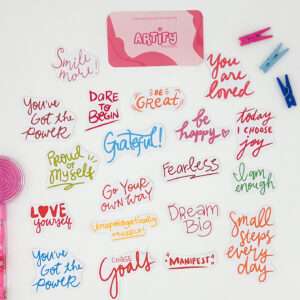 ARTIFY
Smile
more!
You are
loved
DARE
to
BEGIN
BE
GREAT
You've
Got the
Power
Grateful!
be
happy
today
I CHOOSE
joy
PROUD
of
Myself
Fearless
I am
enough
GO YOUR
OWN WAY
LOVE
yourself
Unapologetically
DREAM
BIG
Small
steps
every
day
You've
Got the
Power
CHASE
Goals
MANIFEST